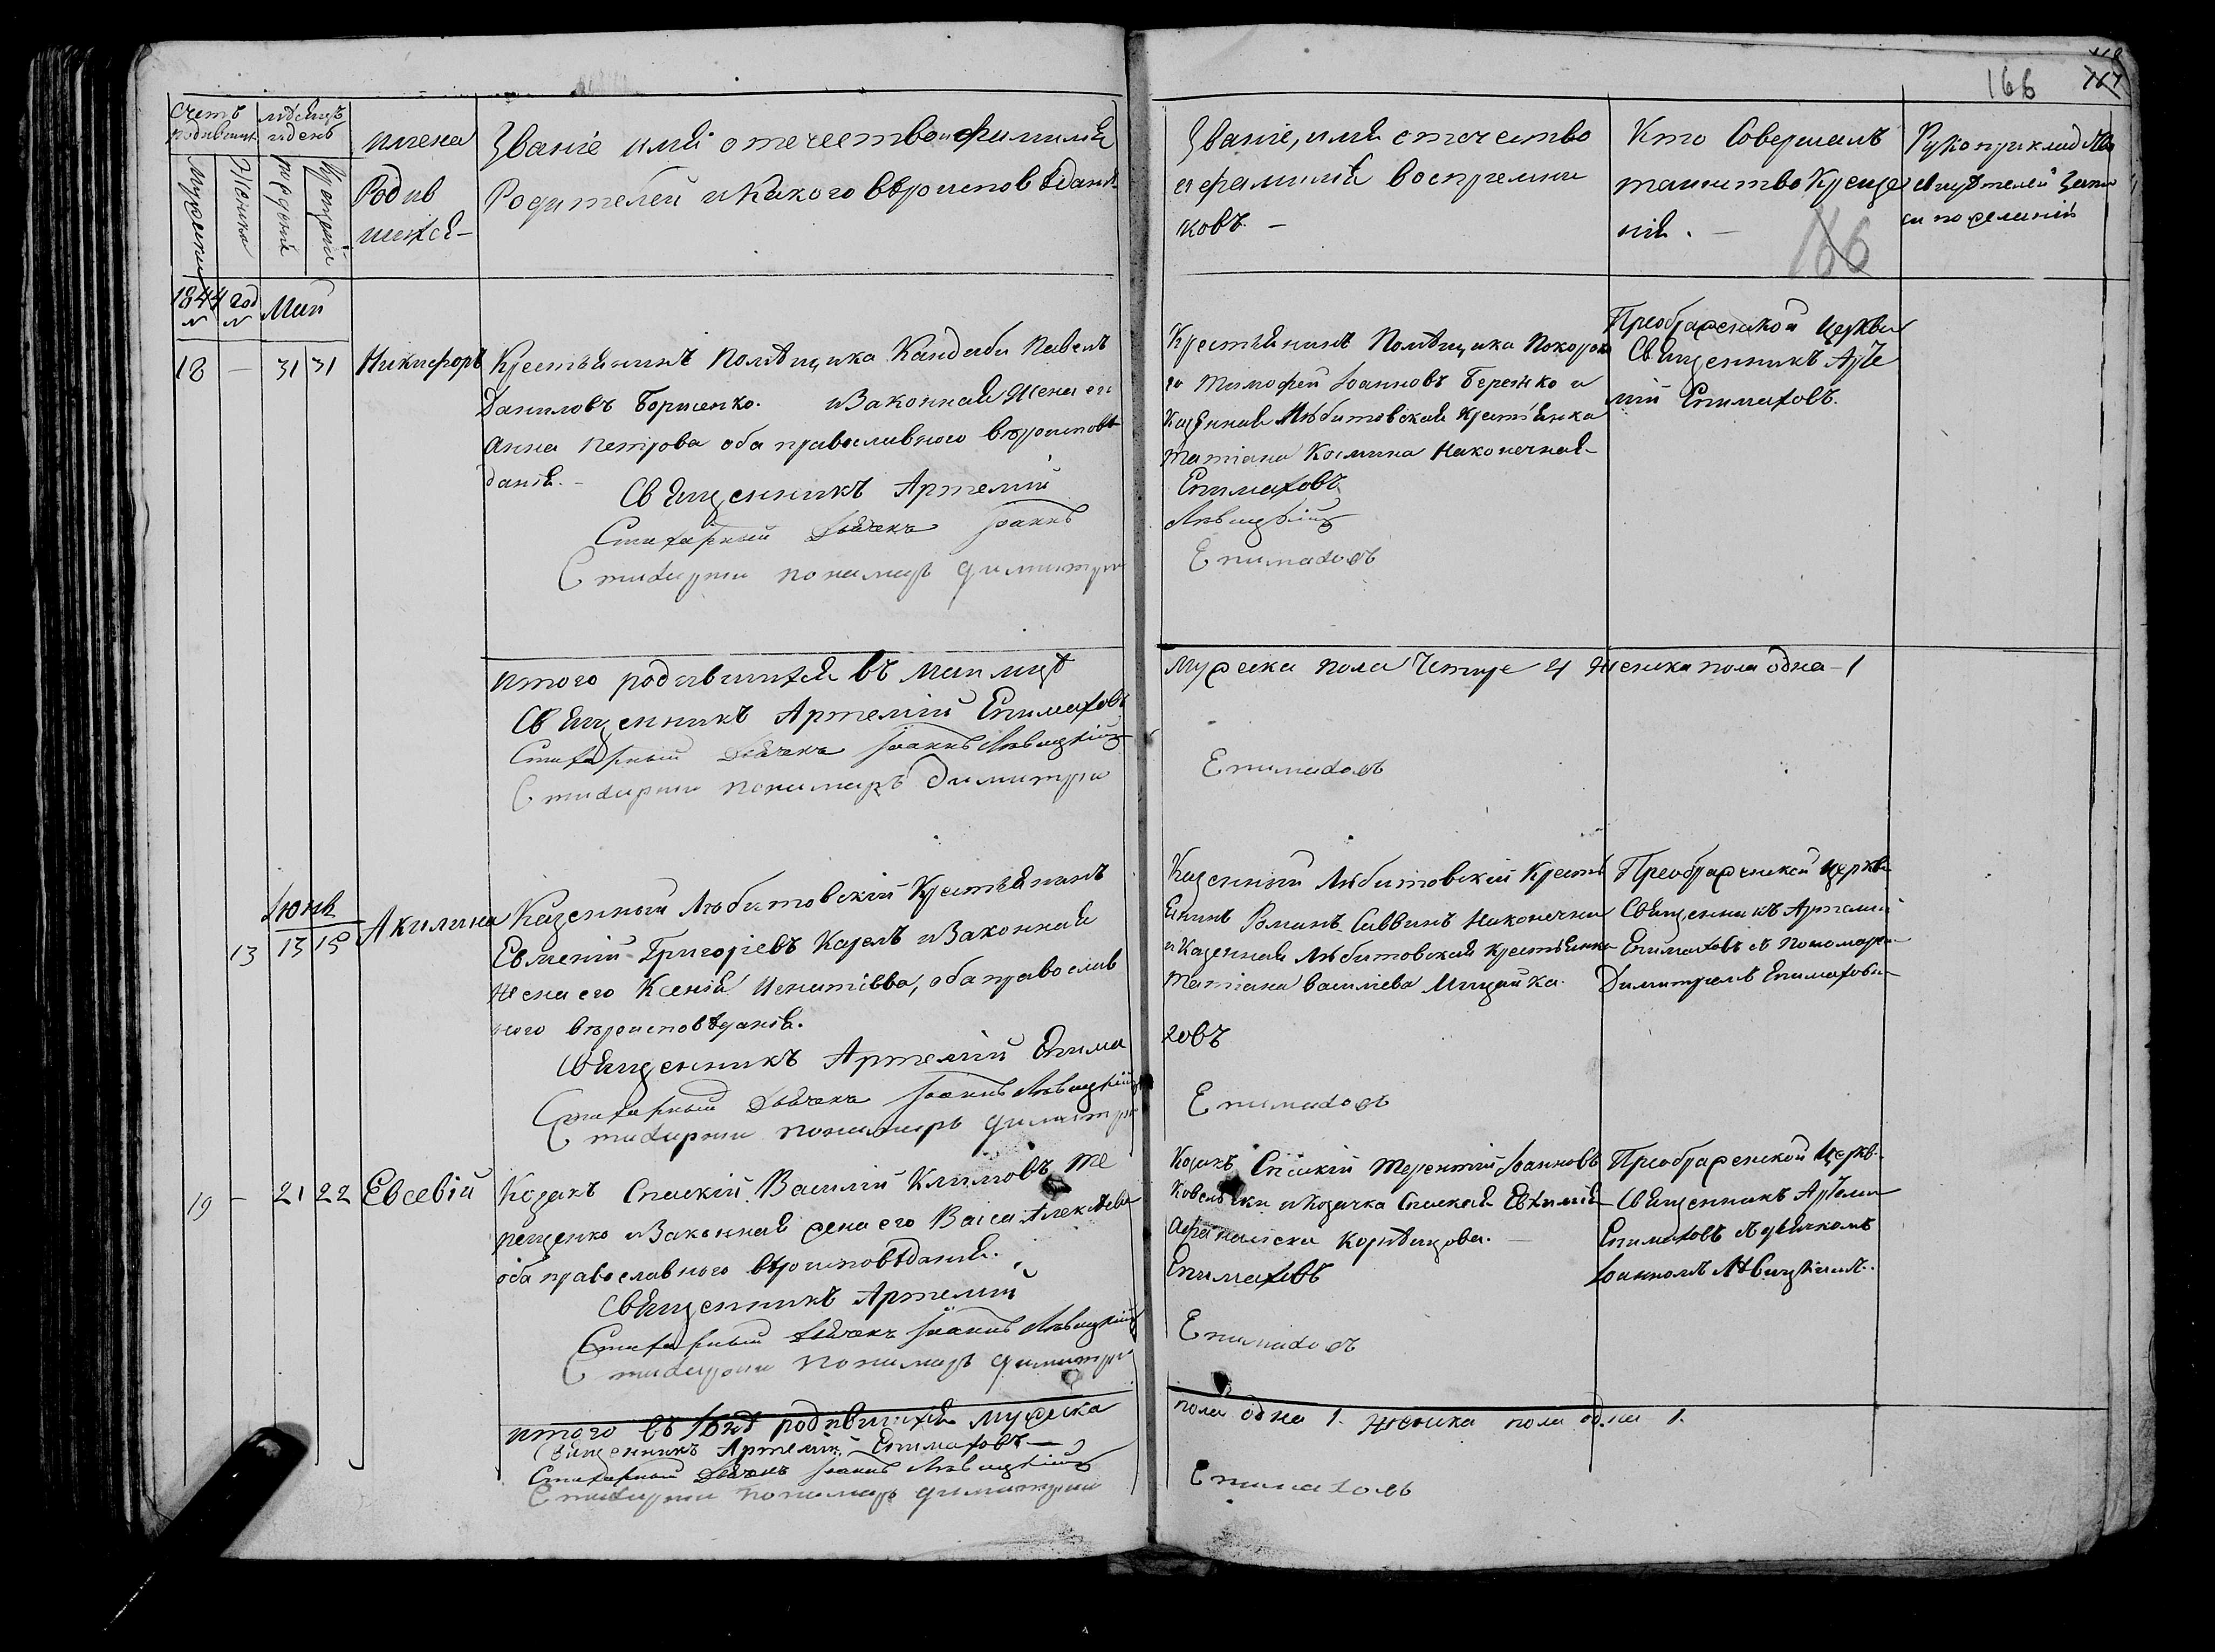 166
Счетъ родившихъ
мѣсяцъ и день
имена Родившихся
Званіе имя отечество и фамилия
Родителей и какого вѣроисповѣдани
Мужески
Женска
рожденія
Крещенія
Званіе, имя отечество
и фамилія воспреемни
ковъ. –
Кто Совершалъ
таинство Креще
нія. –
166
Рукоприклад
Свидѣтелей запи
си по желанію
1844 год Маи
18 – 31 31 Никифоръ
Крестьянинъ Помѣщика Кандыби Павелъ
Даниловъ Борисенко. и Законная Жена его
Анна Петрова оба православного вѣроисповѣ
данія. –
Священникъ Артемій
Стихарный Дьячекъ Іоаннъ
Стихарни пономарь Димитри
Крестьянинъ Помѣщика
Тимофей Іоанновъ Бережко и
Казенная Любитовская Крестьянка
Татіана Космина Наконечная
Епимаховъ
Лѣвицкій
Епимаховъ
Преображенской Церкви
Священникъ Арте
мій Епимаховъ.
итого родившихся въ Маи мцѣ
мужска пола Четире 4 женска пола одна – 1
Священникъ Артемій Епимаховъ
Стихарный Дьячекъ Іоаннъ Лѣвицкій
Стихарни пономарь Димитри
Епимаховъ
Іюнь
13 13 15 Акилина
Казенный Любитовскій Крестьянинъ
Евмений Григоріевъ Карелъ и Законная
Жена его Ксенія Игнатіева, оба православ
ного вѣроисповѣданія.
Священникъ Артемій Епима
Стихарный Дьячекъ Іоаннъ Лѣвицкій
Стихарни пономарь Димитри
Казенный Любитовскій Кресть
янинъ Романъ Саввинъ Наконечни
и Казенная Любитовская Крестьянка
Татіана Василіева
ховъ
Епимаховъ
Преображенской Церкви
Священникъ Артемій
Епимаховъ съ Пономаре
Димитріемъ Епимахови
19 – 21 22 Евсевій
Козакъ Спаскій Василій Климовъ Те
рещенко и Законная жена его Васса Алексѣева
оба православного вѣроисповѣданія.
Священникъ Артемій
Стихарный Дьячекъ Іоаннъ Лѣвицкій
Стихарни пономарь Димитри
Козакъ Спаскій Терентій Іоанновъ
и Козачка Спаская Евхимія
Епимаховъ
Епимаховъ
Преображенской Церкв.
Священникъ Артеми
Епимаховъ съ дьячкомъ
Іоанномъ Лѣвицкимъ.
итого въ Іюнѣ родившихся мужска
пола одна 1. женска пола одна 1.
Священникъ Артемій Епимаховъ
Стихарный Дьячекъ Іоаннъ Лѣвицкій
Стихарни пономарь Димитри
Епимаховъ